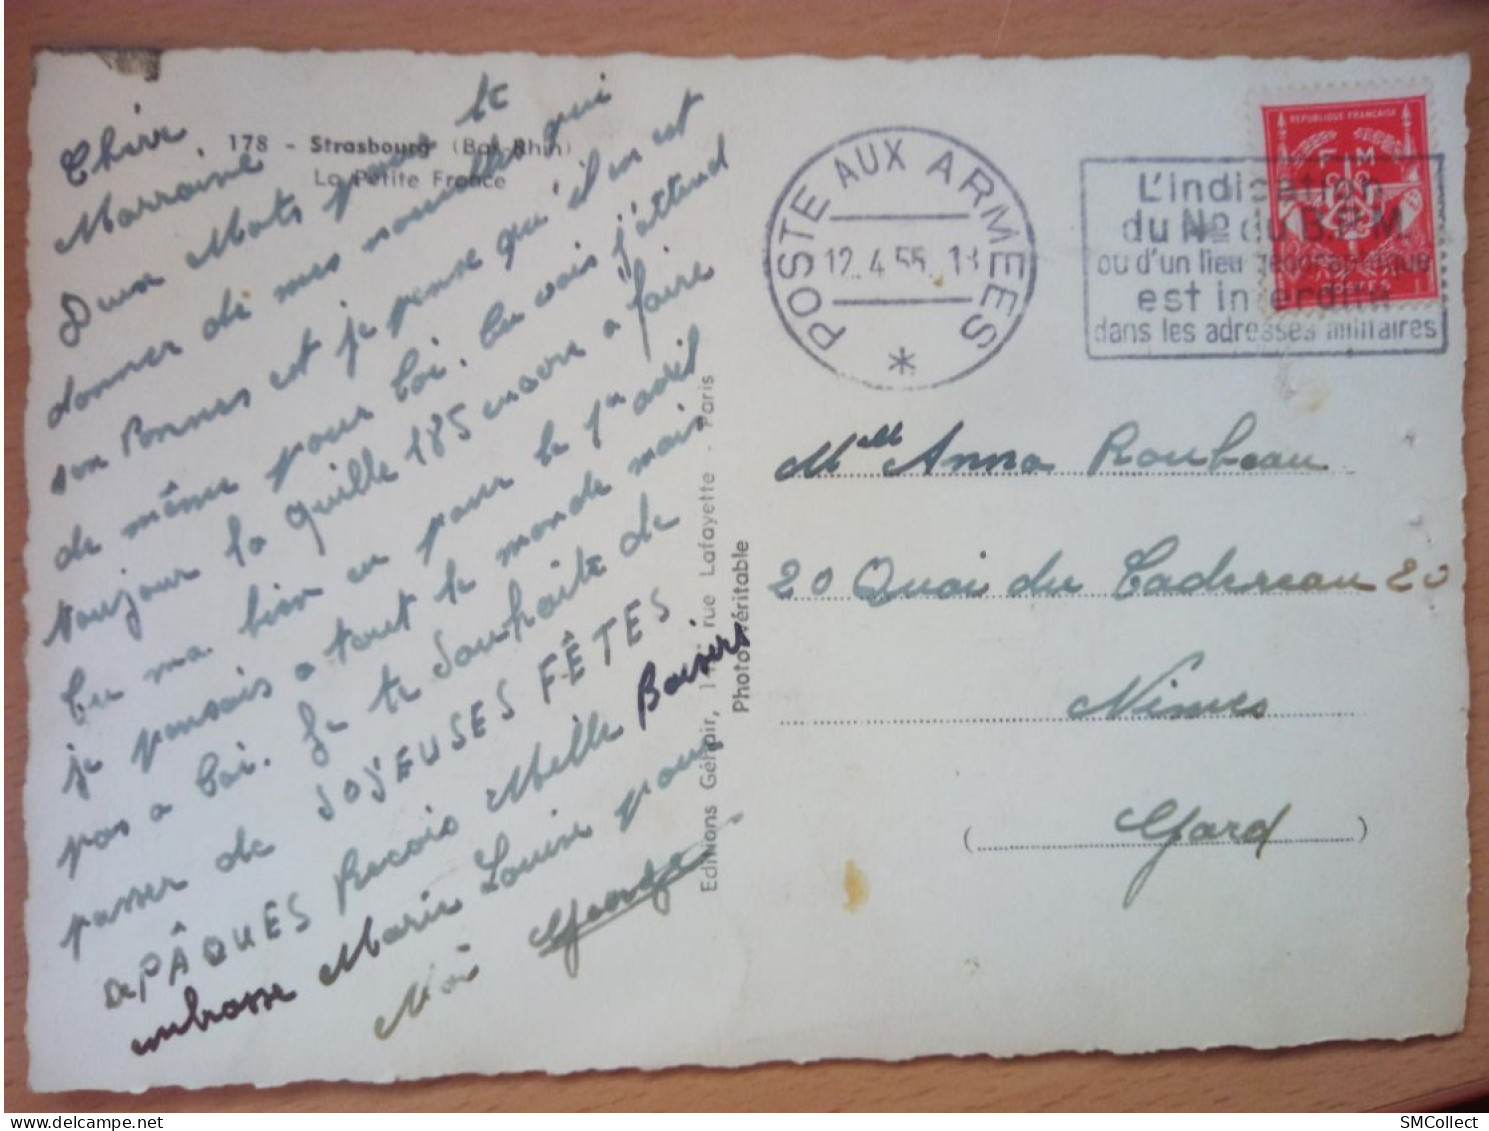 178 - Strasbourg (Bas-Rhin)
La Petite France
Chère
Marraine
Deux Mots pour te
donner de mes nouvelles qui
son Bonnes et je pense qu'il en est
de même pour toi. Tu vois j'attend
toujour la quille 185 encore a faire
tu ma bien eu pour le 1er avril
je pensais a tout le monde mais
pas a toi. Je te souhaite de
passer de JOYEUSES FÊTES
de PÂQUES Reçois Mille Baisers
embrasse Marie Louise pour
Moi
Editions Gén, rue Lafayette - Paris
Photo véritable
POSTE AUX ARMEES
12.4 55. 18
*
L'indication
du No du B.P.M.
ou d'un lieu géographique
est interdite
dans les adresses militaires
REPUBLIQUE FRANÇAISE
F M
POSTES
Melle Anna Roubeau
20 Quai du Cadereau 20
Nimes
(Gard)
SMCollect